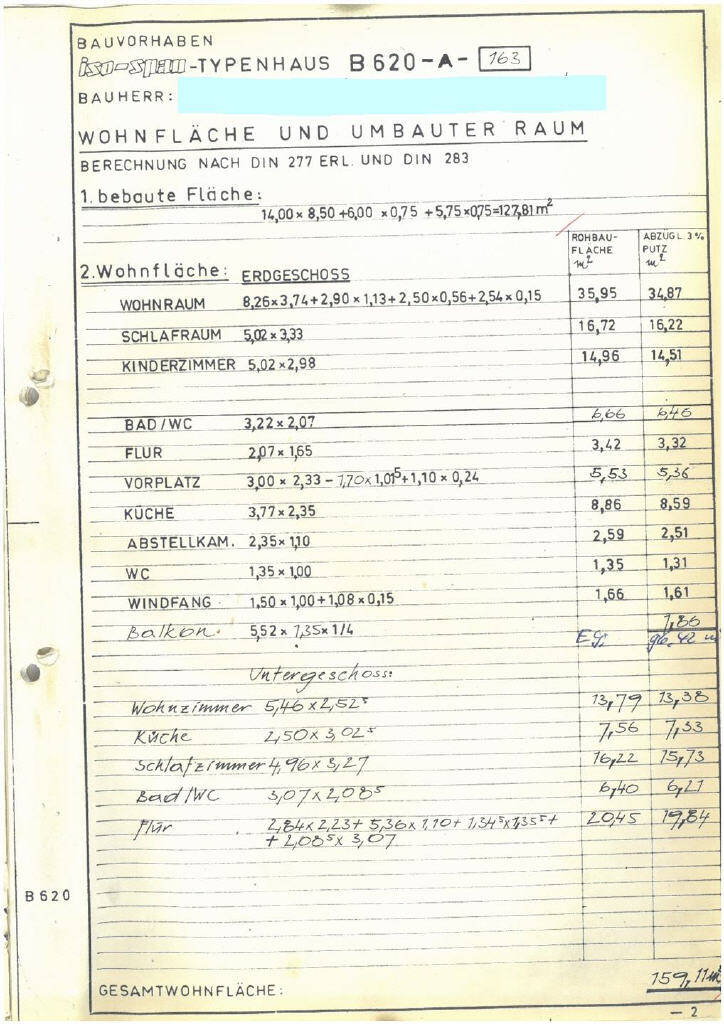 BAUVORHABEN
iso-span-TYPENHAUS B 620-A- 163
BAUHERR:
WOHNFLÄCHE UND UMBAUTER RAUM
BERECHNUNG NACH DIN 277 ERL. UND DIN 283
1. bebaute Fläche:
14,00 × 8,50 + 6,00 × 0,75 + 5,75 × 0,75 = 127,81 m²
ROHBAU-FLÄCHE m² ABZÜGL. 3% PUTZ m²
2. Wohnfläche: ERDGESCHOSS
WOHNRAUM 8,26 × 3,74 + 2,90 × 1,13 + 2,50 × 0,56 + 2,54 × 0,15 35,95 34,87
SCHLAFRAUM 5,02 × 3,33 16,72 16,22
KINDERZIMMER 5,02 × 2,98 14,96 14,51
BAD/WC 3,22 × 2,07 6,66 6,46
FLUR 2,07 × 1,65 3,42 3,32
VORPLATZ 3,00 × 2,33 - 1,70 × 1,01⁵ + 1,10 × 0,24 5,53 5,36
KÜCHE 3,77 × 2,35 8,86 8,59
ABSTELLKAM. 2,35 × 1,10 2,59 2,51
WC 1,35 × 1,00 1,35 1,31
WINDFANG 1,50 × 1,00 + 1,08 × 0,15 1,66 1,61
Balkon 5,52 × 1,35 × 1/4 1,86
EG: 96,42 m
Untergeschoss:
Wohnzimmer 5,46 × 2,52⁵ 13,79 13,38
Küche 2,50 × 3,02⁵ 7,56 7,33
Schlafzimmer 4,96 × 3,27 16,22 15,73
Bad/WC 3,07 × 2,08⁵ 6,40 6,21
Flur 2,84 × 2,23 + 5,36 × 1,10 + 1,34⁵ × 1,35⁵ + 20,45 19,84
+ 2,08⁵ × 3,07
B 620
GESAMTWOHNFLÄCHE: 159,11 m²
— 2